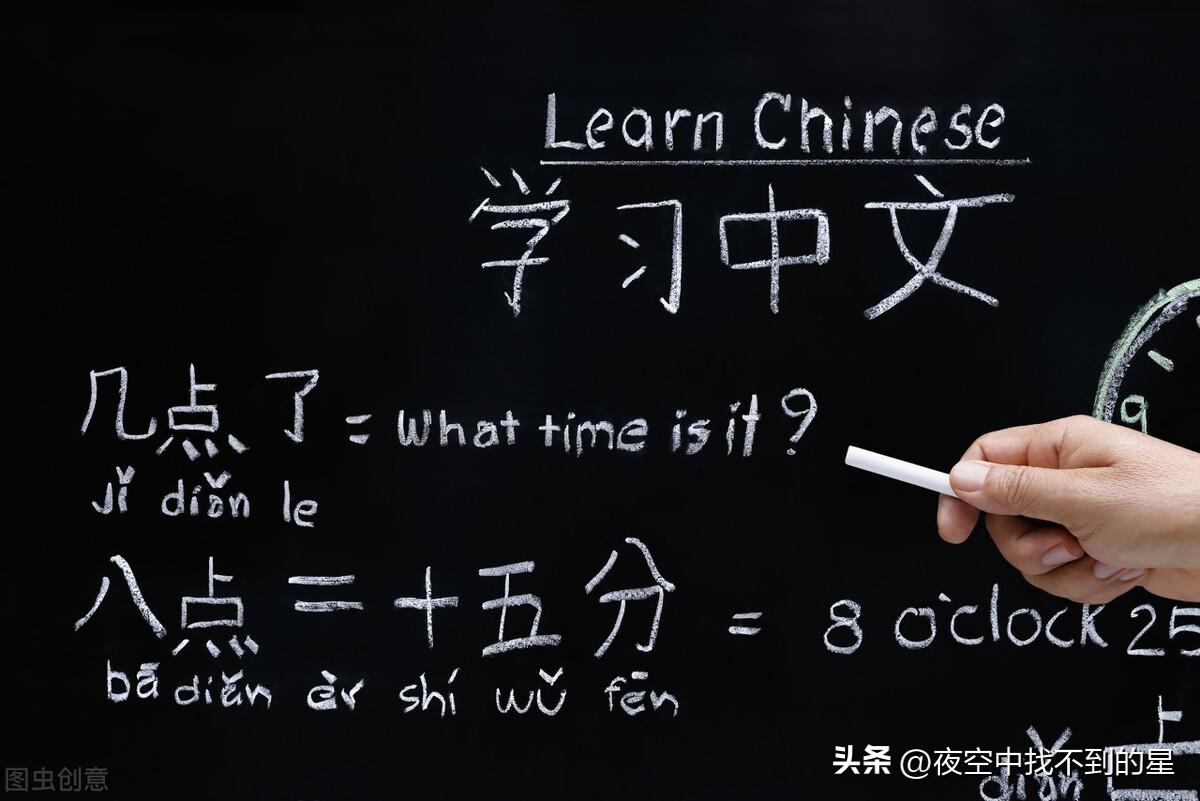 Learn Chinese
学习中文
几点了 = What time is it?
jǐ diǎn le
八点二十五分 = 8 o'clock 25
bā diǎn èr shí wǔ fēn
9
点
diǎn
头条 @夜空中找不到的星
图虫创意